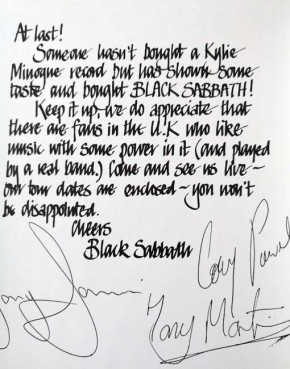 At last!
Someone hasn't bought a Kylie
Minogue record but has shown some
taste and bought BLACK SABBATH!
Keep it up, we do appreciate that
there are fans in the U.K who like
music with some power in it (and played
by a real band.) Come and see us live –
our tour dates are enclosed – you won't
be disappointed.
Cheers
Black Sabbath
Cozy Powell
Tony Iommi
Tony Martin